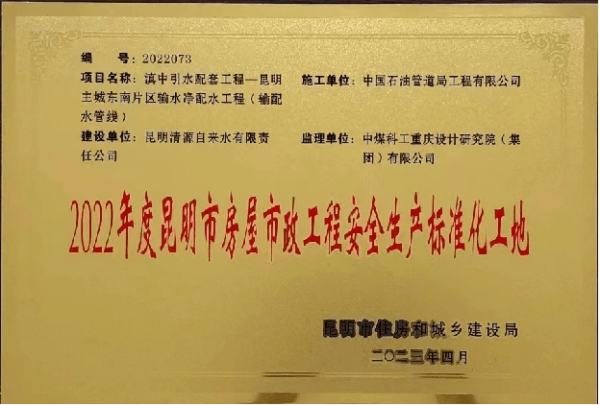 编 号：2022073
项目名称：滇中引水配套工程—昆明
主城东南片区输水净配水工程（输配
水管线）
施工单位：中国石油管道局工程有限公司
建设单位：昆明清源自来水有限责
任公司
监理单位：中煤科工重庆设计研究院（集
团）有限公司
2022年度昆明市房屋市政工程安全生产标准化工地
昆明市住房和城乡建设局
二〇二三年四月